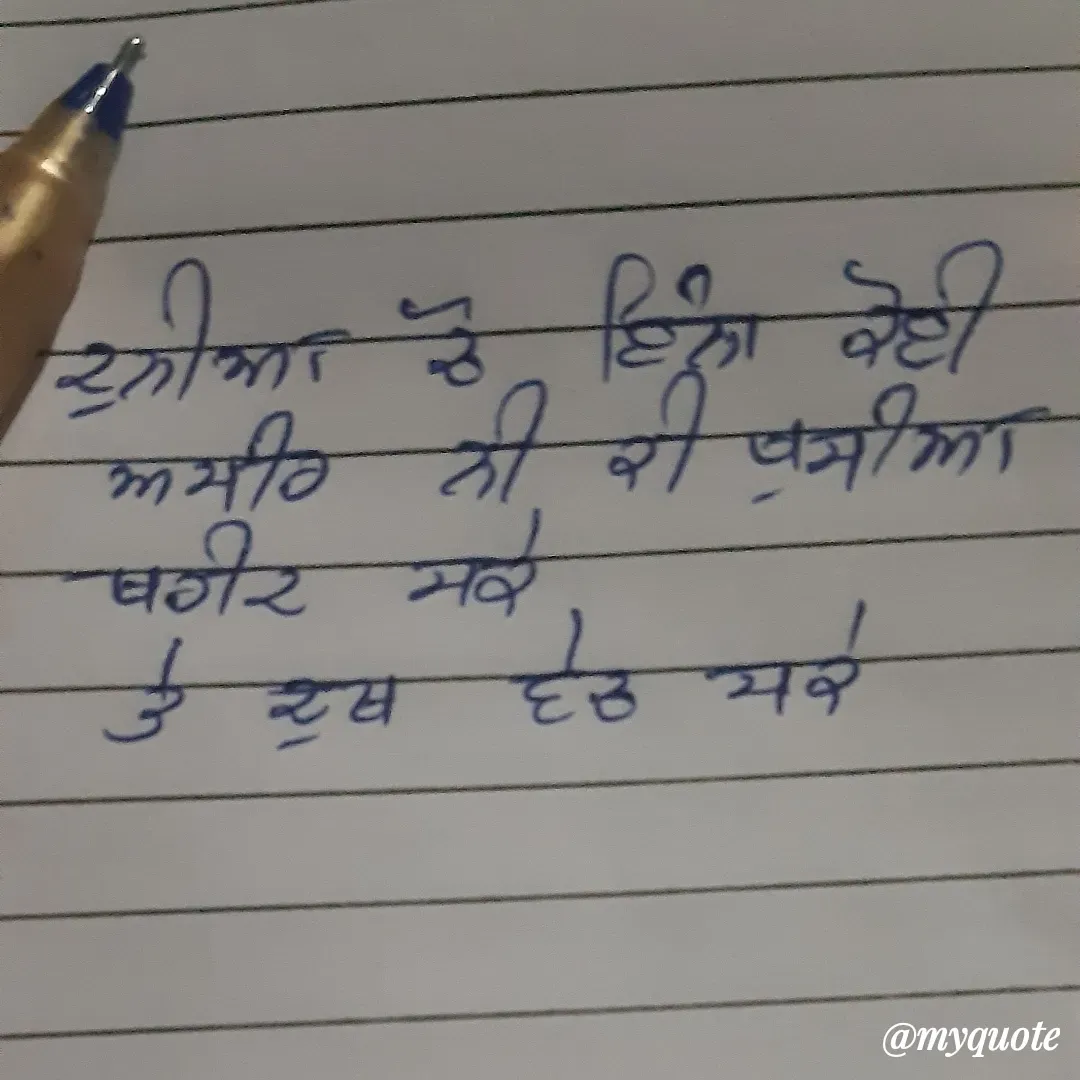 ਦੁਨੀਆ ਚੌ ਇੰਨਾ ਕੋਈ
ਅਮੀਰ ਨੀ ਕੀ ਖੁਸੀਆ
ਖਰੀਦ ਸਕੇ
ਤੇ ਦੁਖ ਵੇਚ ਸਕੇ
@myquote